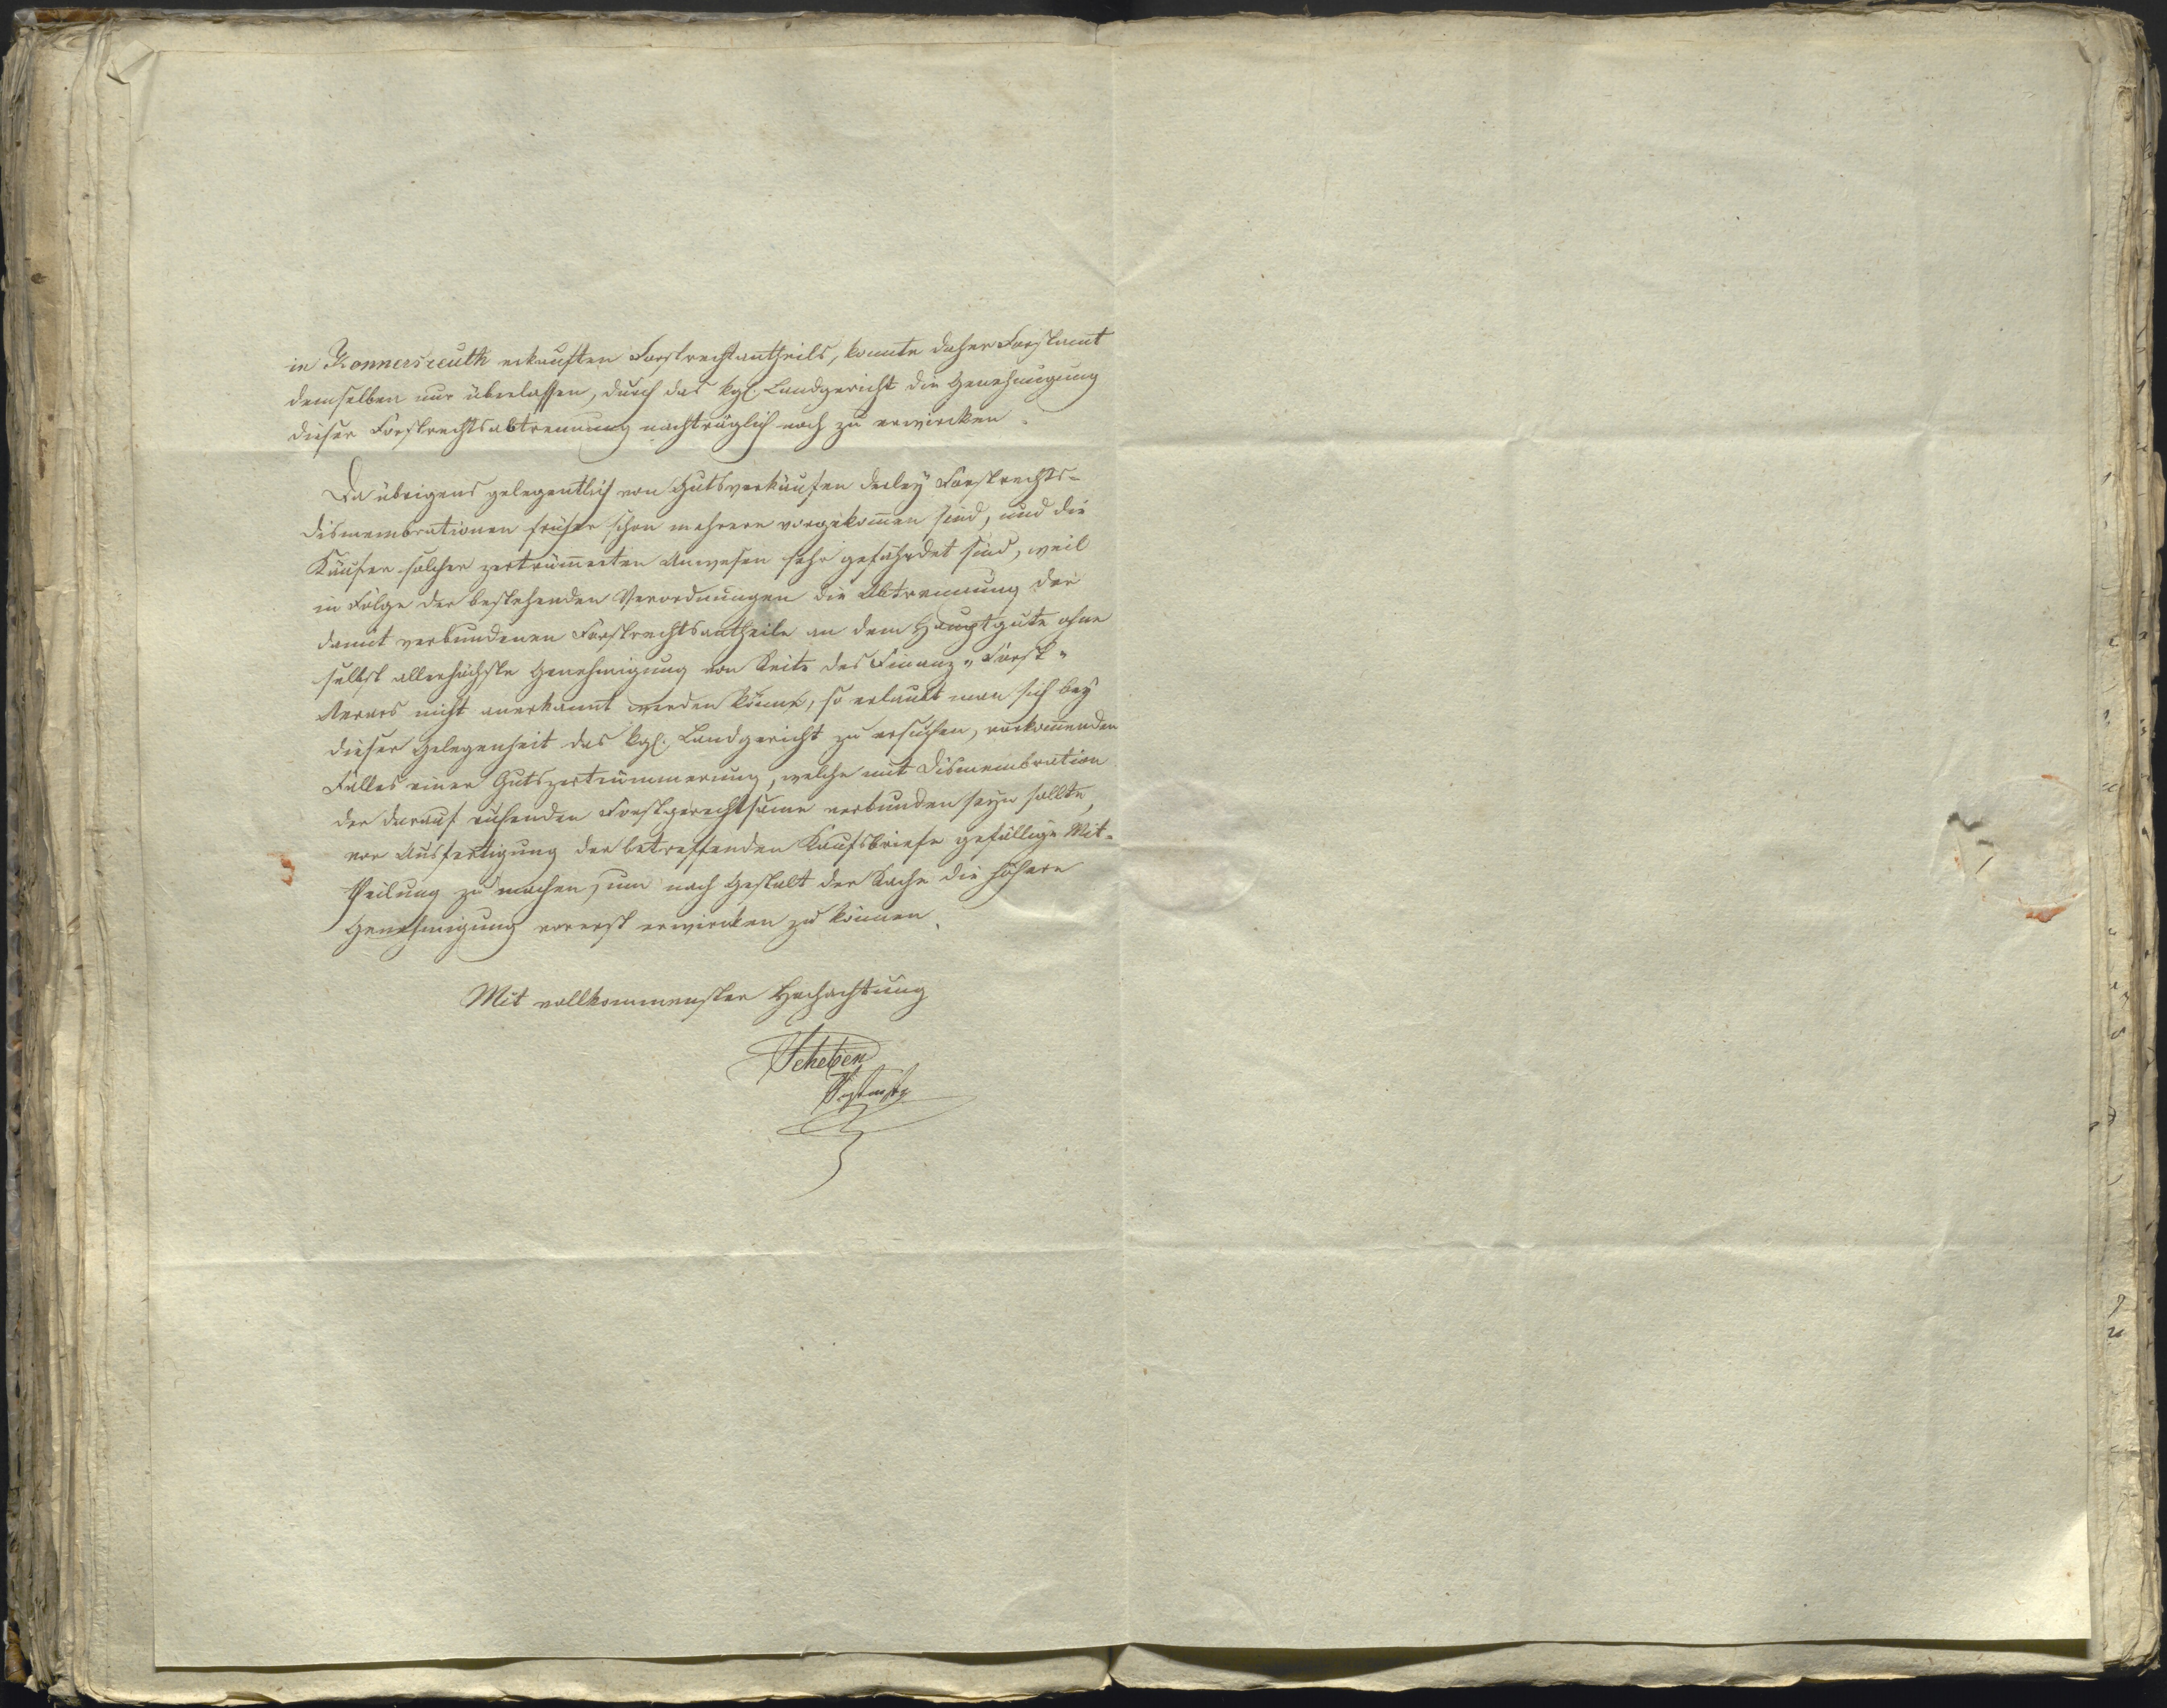 in Konnersreuth erkauften Forstrechtantheils, konnte daher Forstamt
demselben nur überlassen, durch das kgl. Landgericht die Genehmigung
dieser Forstrechtsabtrennung nachträglich noch zu erwircken.
Da übrigens gelegentlich von Gutsverkäufen derley Forstrechts-
dismembrationen früher schon mehrere vorgekommen sind, und die
Käufer solcher zertrümmerten Anwesen sehr gefährdet sind, weil
in Folge der bestehenden Verordnungen die Abtrennung der
damit verbundenen Forstrechtsantheile an dem Hauptgute ohne
selbst allerhöchste Genehmigung von Seite des Finanz- Forst-
Aerars nicht anerkannt werden könne, so erlaubt man sich bey
dieser Gelegenheit das kgl. Landgericht zu ersuchen, vorkommenden
Falles einer Gutszertrümmerung, welche mit Dismembration
der darauf ruhenden Forstgerechtsame verbunden seyn sollte,
vor Ausfertigung der betreffenden Kaufsbriefe gefällige Mit-
theilung zu machen, um nach Gestalt der Sache die höhere
Genehmigung vorerst erwircken zu können.
Mit vollkommenster Hochachtung
Scheben